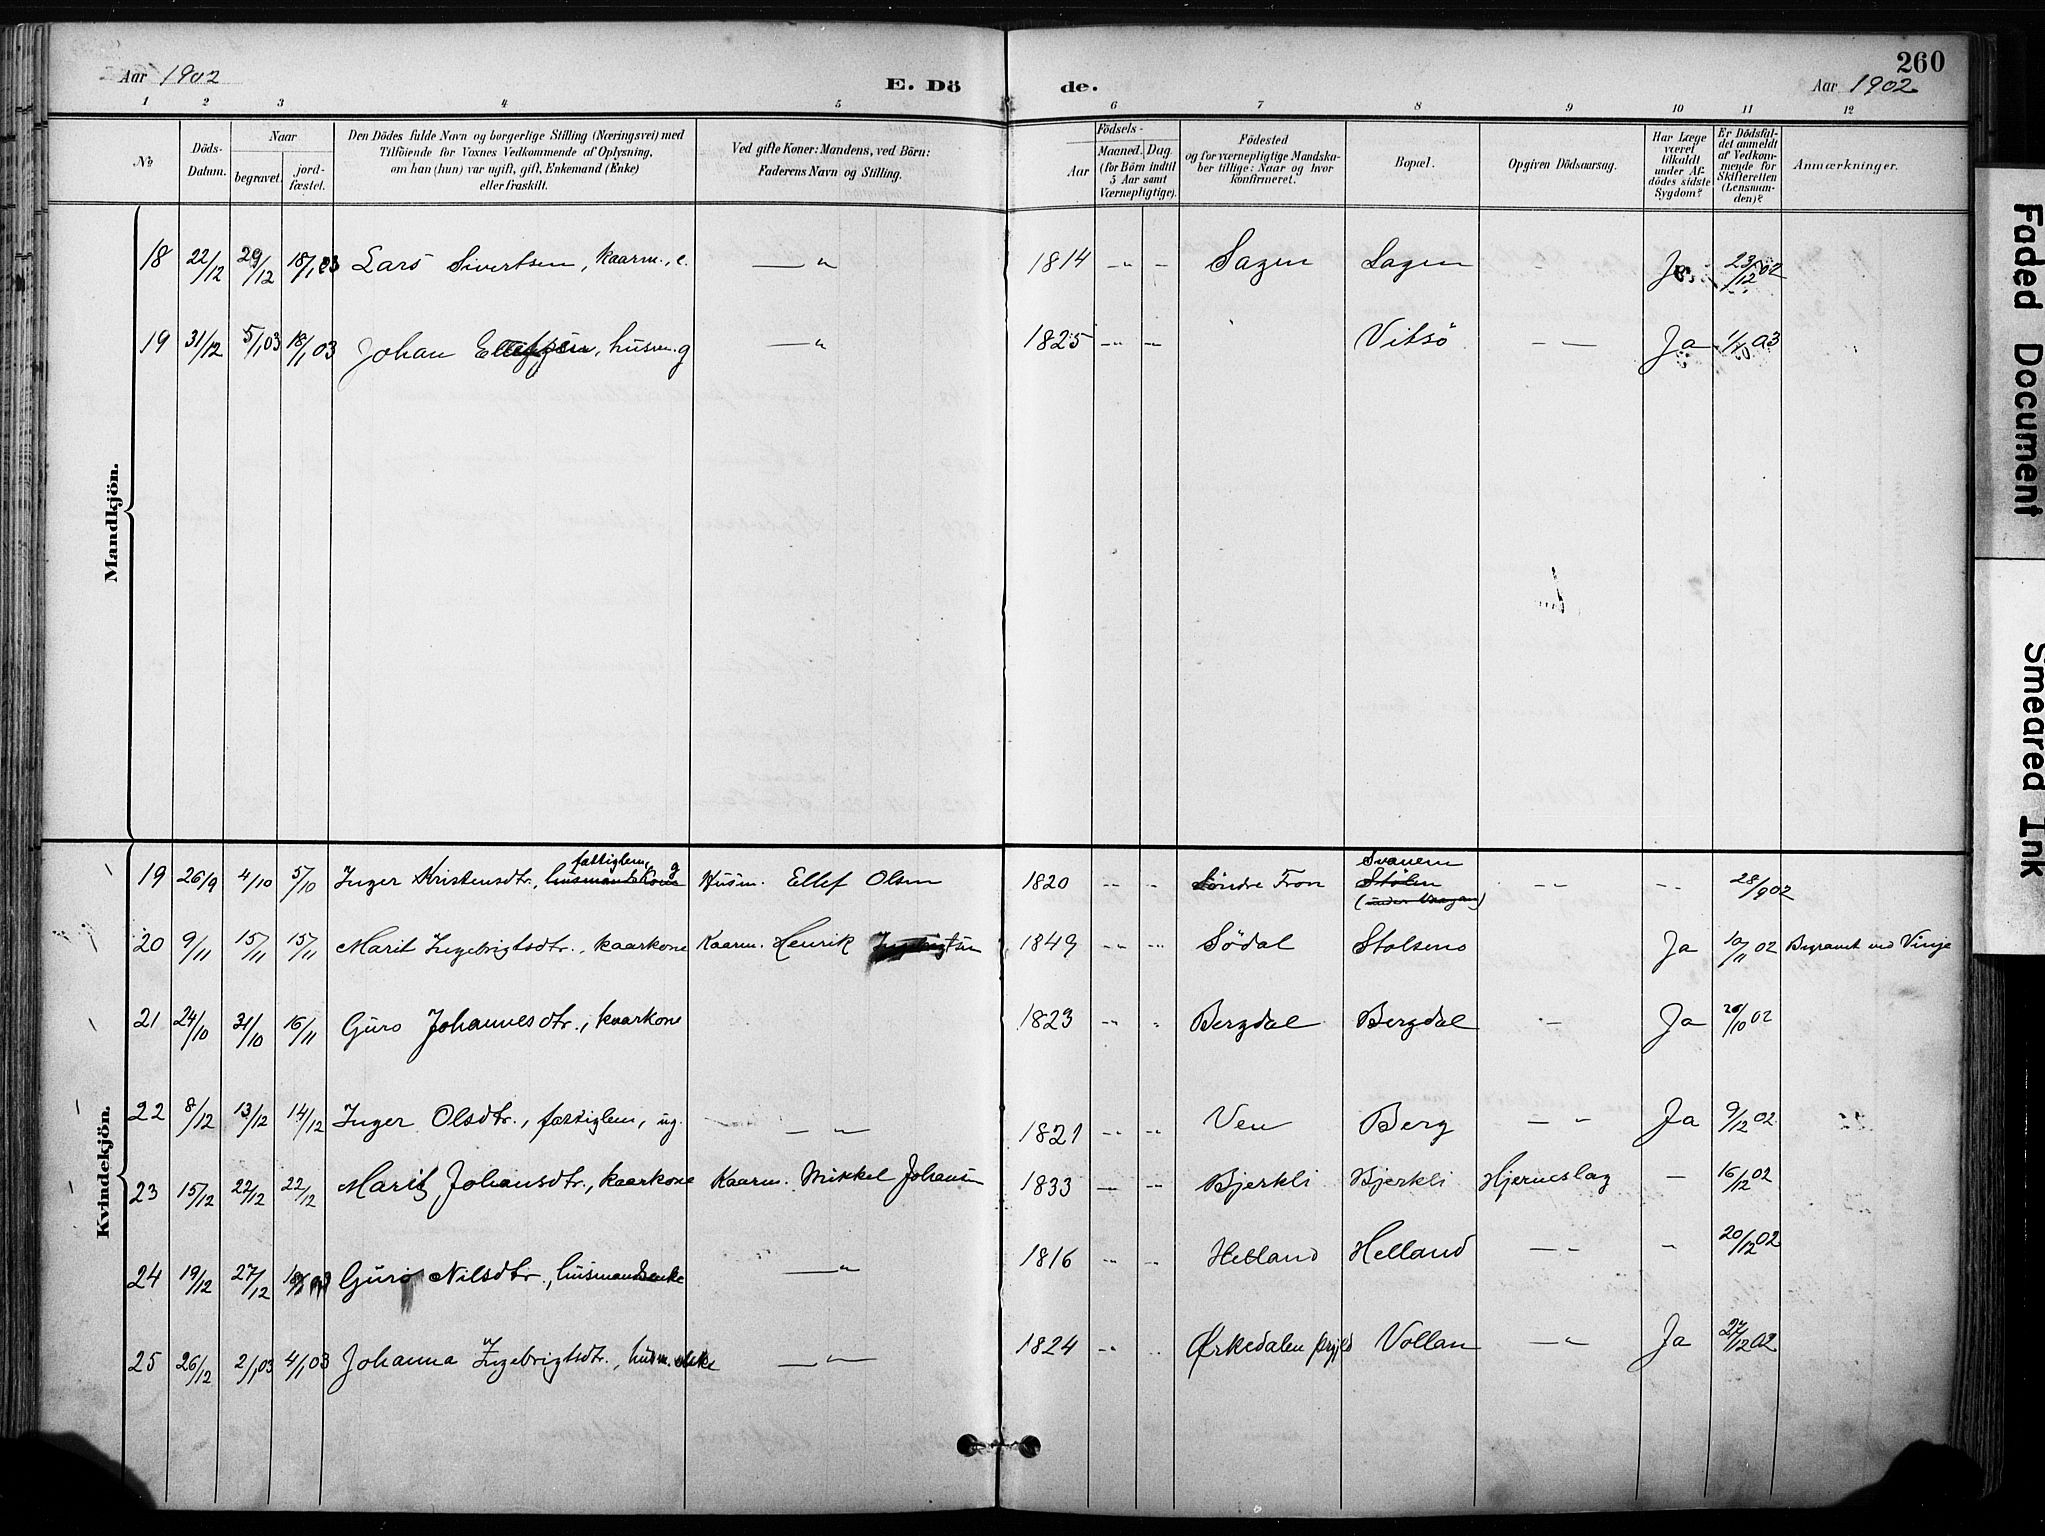 260
Aar 1902 E. Dö de. Aar 1902
1 2 3 4 5 6 7 8 9 10 11 12
No
Döds-Datum.
Naar
begravet.
jord-fæstet.
Den Dödes fulde Navn og borgerlige Stilling (Næringsvei) med
Tilföiende for Voxnes Vedkommende af Oplysning,
om han (hun) var ugift, gift, Enkemand (Enke)
eller fraskilt.
Ved gifte Koner: Mandens, ved Börn:
Faderens Navn og Stilling.
Födsels-
Aar
Maaned. Dag
(for Börn indtil
5 Aar samt
Værnepligtige).
Födested
og for værnepligtige Mandska-
ber tillige: Naar og hvor
konfirmeret.
Bopæl.
Opgiven Dödsaarsag.
Har Læge
været
tilkaldt
under Af-
dödes sidste
Sygdom?
Er Dödsfal-
det anmeldt
af Vedkom-
mende for
Skifteretten
(Lensman-
den)?
Anmærkninger.
Mandkjön.
18 22/12 29/12 18/1 03 Lars Sivertsen, kaarm., e. — " 1814 -"- - Sagen Sagen - Ja 23/12 02
19 31/12 5/1 03 18/1 03 Johan Ellefsen, husm. g — " 1825 -"- -"- Vitsö - - Ja 1/1 03
Kvindekjön.
fattiglem, g Svanem
19 26/9 4/10 5/10 Inger Kristensdtr., husmandskone Husm. Ellef Olsen 1820 -"- -"- Söndre Fron Stölen - - -- 28/9 02
20 9/11 15/11 15/11 Marit Ingebrigtsdtr., kaarkone Kaarm. Henrik Ingebrigtsen 1849 -"- -"- Södal Stolsmo Ja 10/11 02 Begravet ved Vinje
21 24/10 31/10 16/11 Guro Johannesdtr., kaarkone 1823 -"- " Bergdal Bergdal - Ja 26/10 02
22 8/12 13/12 14/12 Inger Olsdtr., fattiglem, ug. — " — 1821 -"- -"- Ven Berg — " Ja 9/12 02
23 15/12 22/12 22/12 Marit Johansdtr., kaarkone Kaarm. Mikkel Johansen 1833 -"- -"- Bjerkli Bjerkli Hjerneslag — 16/12 02
24 19/12 27/12 Guro Nilsdtr., husmandsenke — " 1816 -"- -"- Helland Helland — " " 20/12 02
25 26/12 2/1 03 4/1 03 Johanna Ingebrigtsdtr., husm.enke — " — 1824 -"- " Ørkedalen prgjld Vollan — " Ja 27/12 02
Faded Document
Smeared Ink